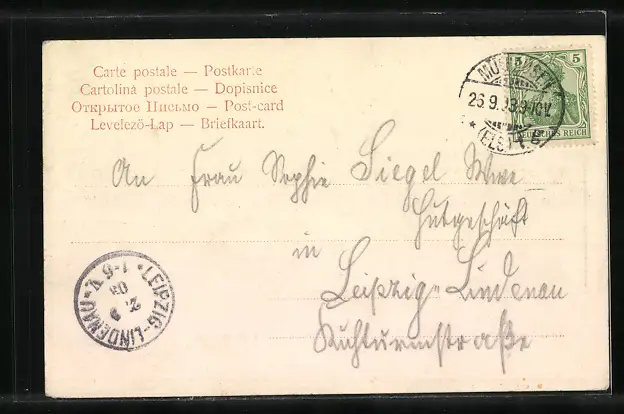 Carte postale — Postkarte
Cartolina postale — Dopisnice
Открытое Письмо — Post-card
Levelező-Lap — Briefkaart.
5 5
DEUTSCHES REICH
26.9.03.
(ELS.)
An Frau Sophie Siegel Wwe
Hutgeschäft
in
Leipzig-Lindenau
Kuhturmstraße
LEIPZIG-LINDENAU